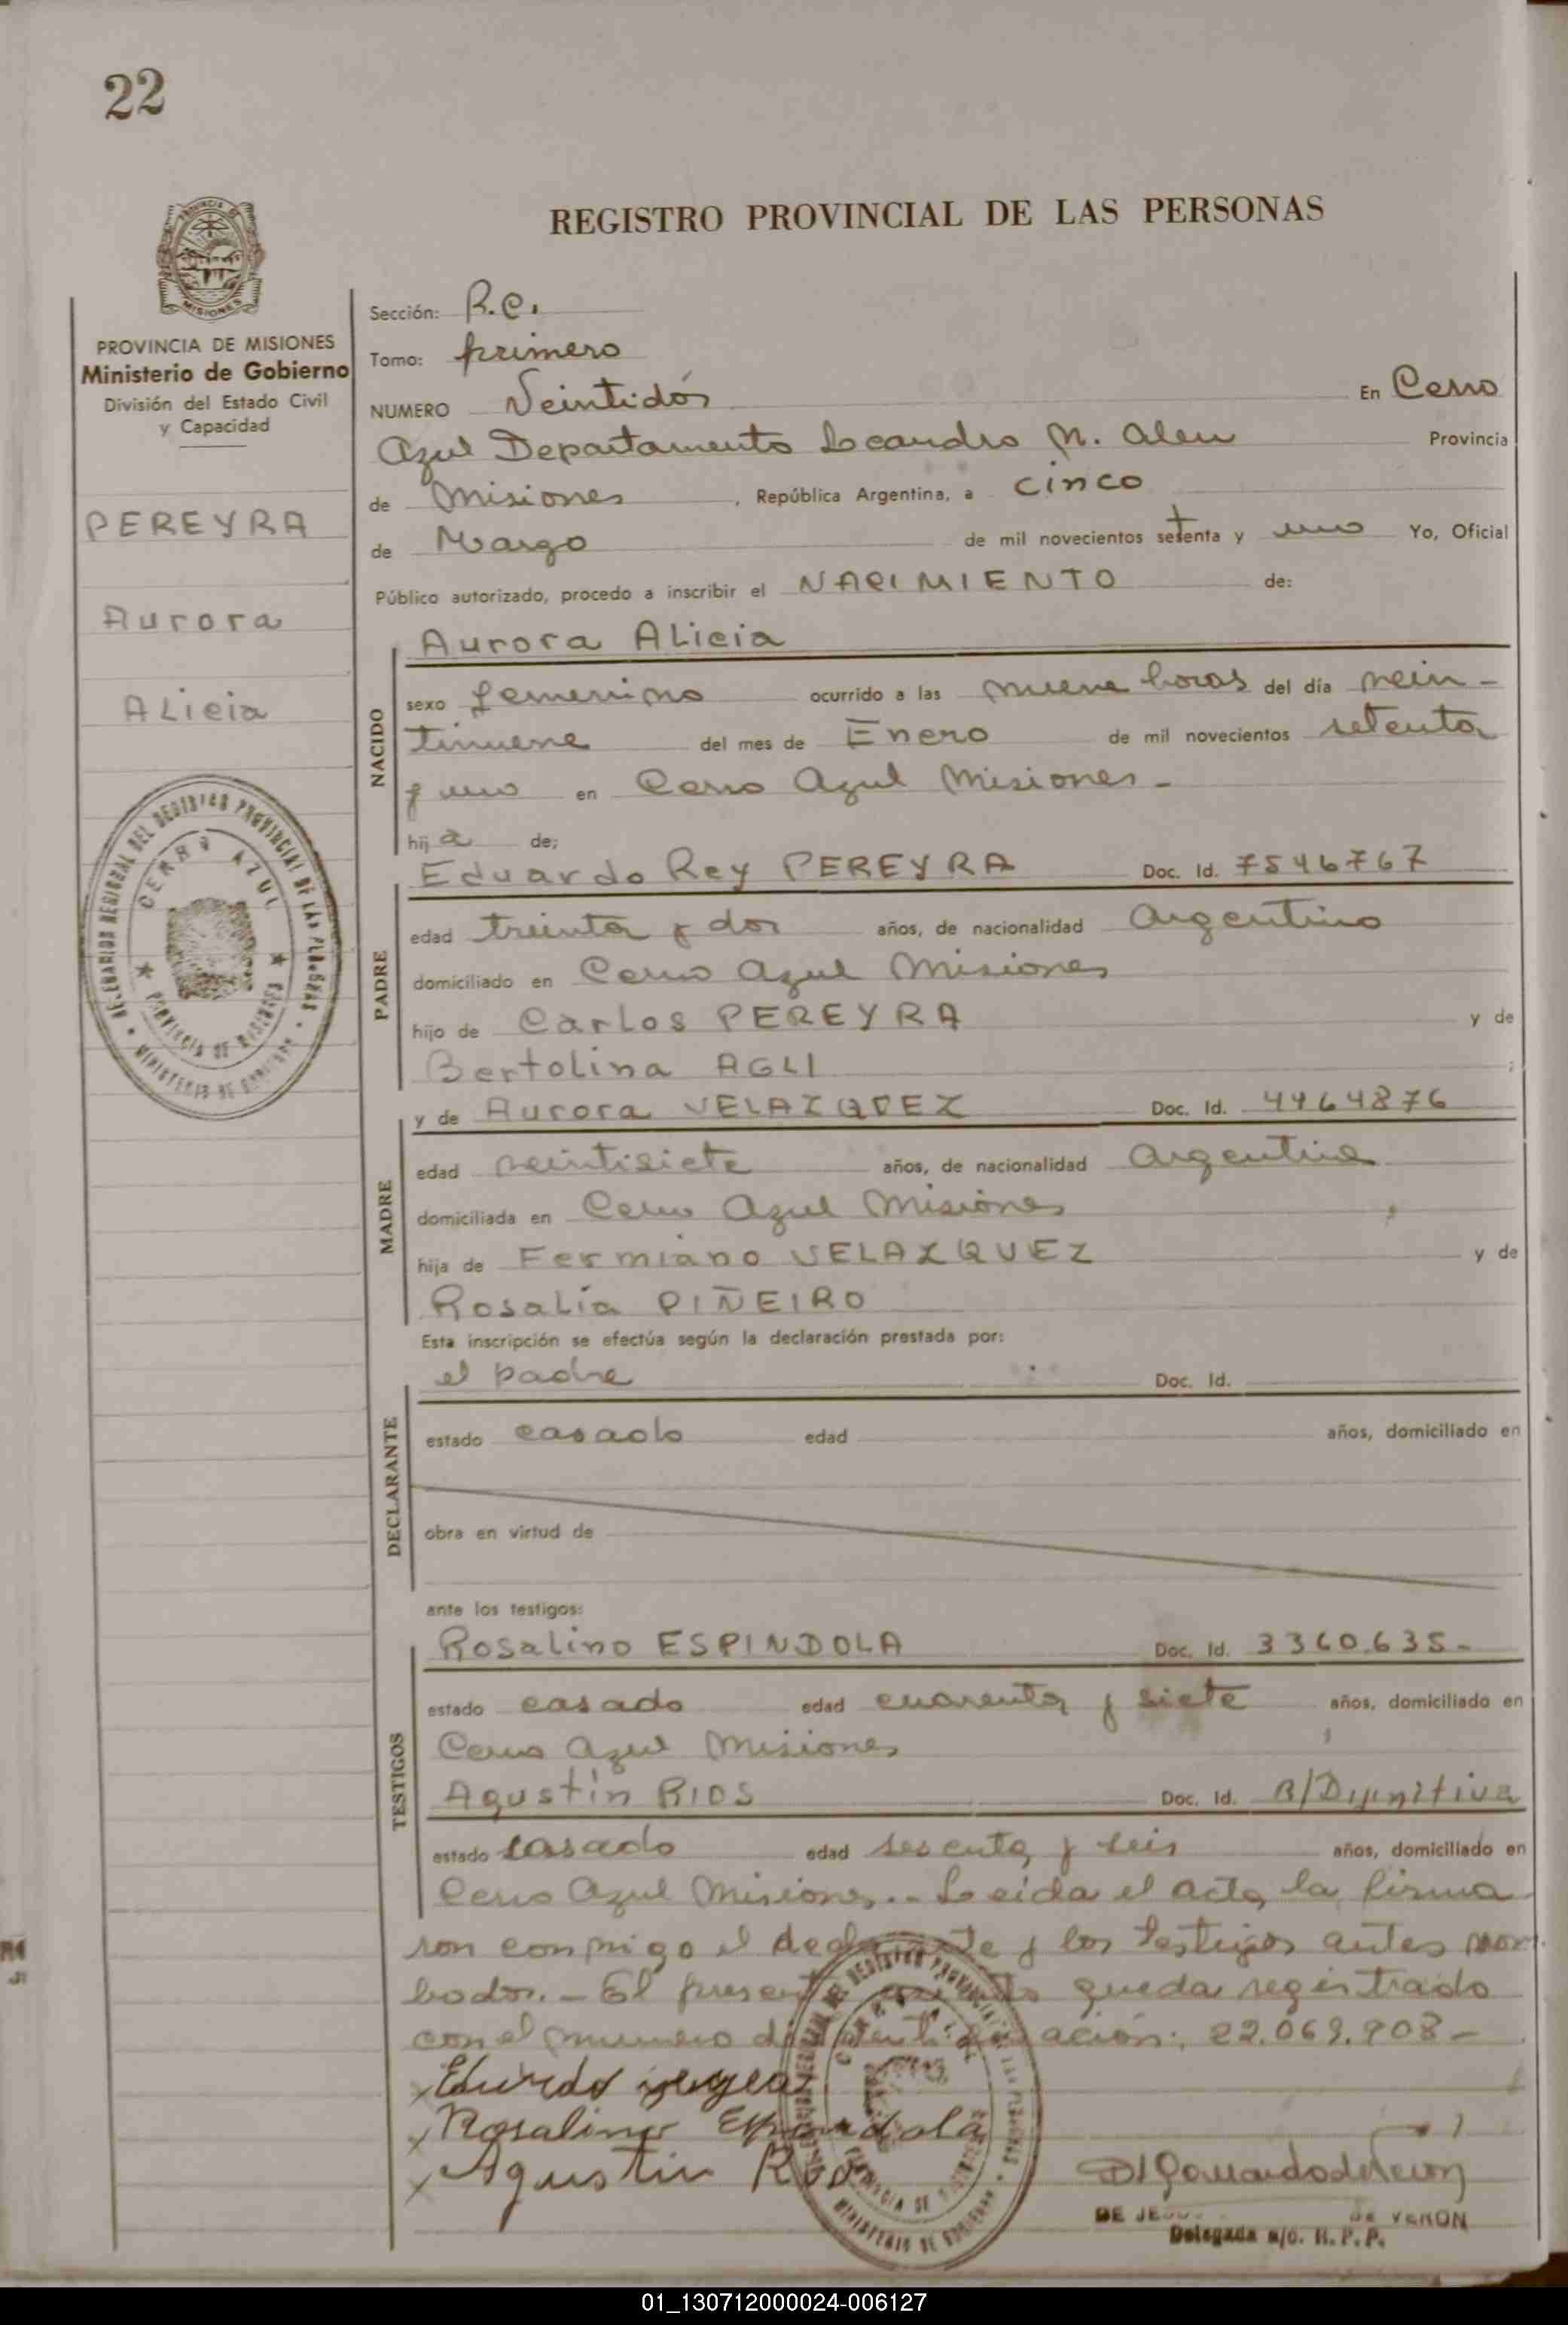 22
REGISTRO PROVINCIAL DE LAS PERSONAS
MISIONES
PROVINCIA DE MISIONES
Ministerio de Gobierno
División del Estado Civil
y Capacidad
PEREYRA
Aurora
Alicia
Sección: R.C.
Tomo: primero
NUMERO Veintidós En Cerro
Azul Departamento Leandro N. Alem Provincia
de Misiones, República Argentina, a cinco
de Marzo de mil novecientos setenta y uno Yo, Oficial
Público autorizado, procedo a inscribir el NACIMIENTO de:
Aurora Alicia
NACIDO
sexo femenino ocurrido a las nueve horas del día vein-
tinueve del mes de Enero de mil novecientos setenta
y uno en Cerro Azul Misiones -
hija de;
Eduardo Rey PEREYRA Doc. Id. 7546767
PADRE
edad treinta y dos años, de nacionalidad Argentino
domiciliado en Cerro Azul Misiones
hijo de Carlos PEREYRA y de
Bertolina AGLI
y de Aurora VELAZQUEZ Doc. Id. 4464876
MADRE
edad veintisiete años, de nacionalidad Argentina
domiciliada en Cerro Azul Misiones
hija de Fermiano VELAZQUEZ y de
Rosalía PIÑEIRO
Esta inscripción se efectúa según la declaración prestada por:
el padre Doc. Id.
DECLARANTE
estado casado edad años, domiciliado en
obra en virtud de
ante los testigos:
Rosalino ESPINDOLA Doc. Id. 3360.635-
TESTIGOS
estado casado edad cuarenta y siete años, domiciliado en
Cerro Azul Misiones
Agustín RIOS Doc. Id.
estado casado edad sesenta y seis años, domiciliado en
Cerro Azul Misiones.- Leida el acta, la firma
ron conmigo el declarante y los testigos antes nom
bados.- El presente queda registrado
con el numero de identificación: 22.069.908-
x Eduardo
x Rosalino Espindola
x Agustin Rios
DE VERON
Delegada a/c. R. P. P.
CERRO AZUL
PROVINCIA DE MISIONES
01_130712000024-006127